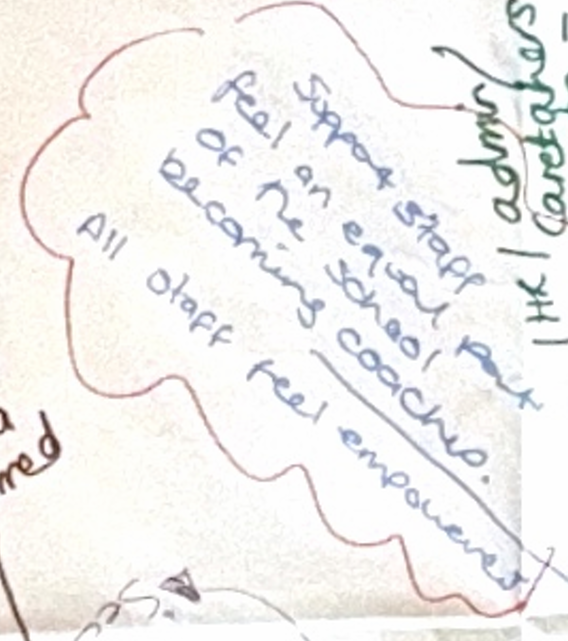 Support staff
feel an equal part
of the school
becoming coaches.
All staff feel empowered
/ HR / admin /
caretakers